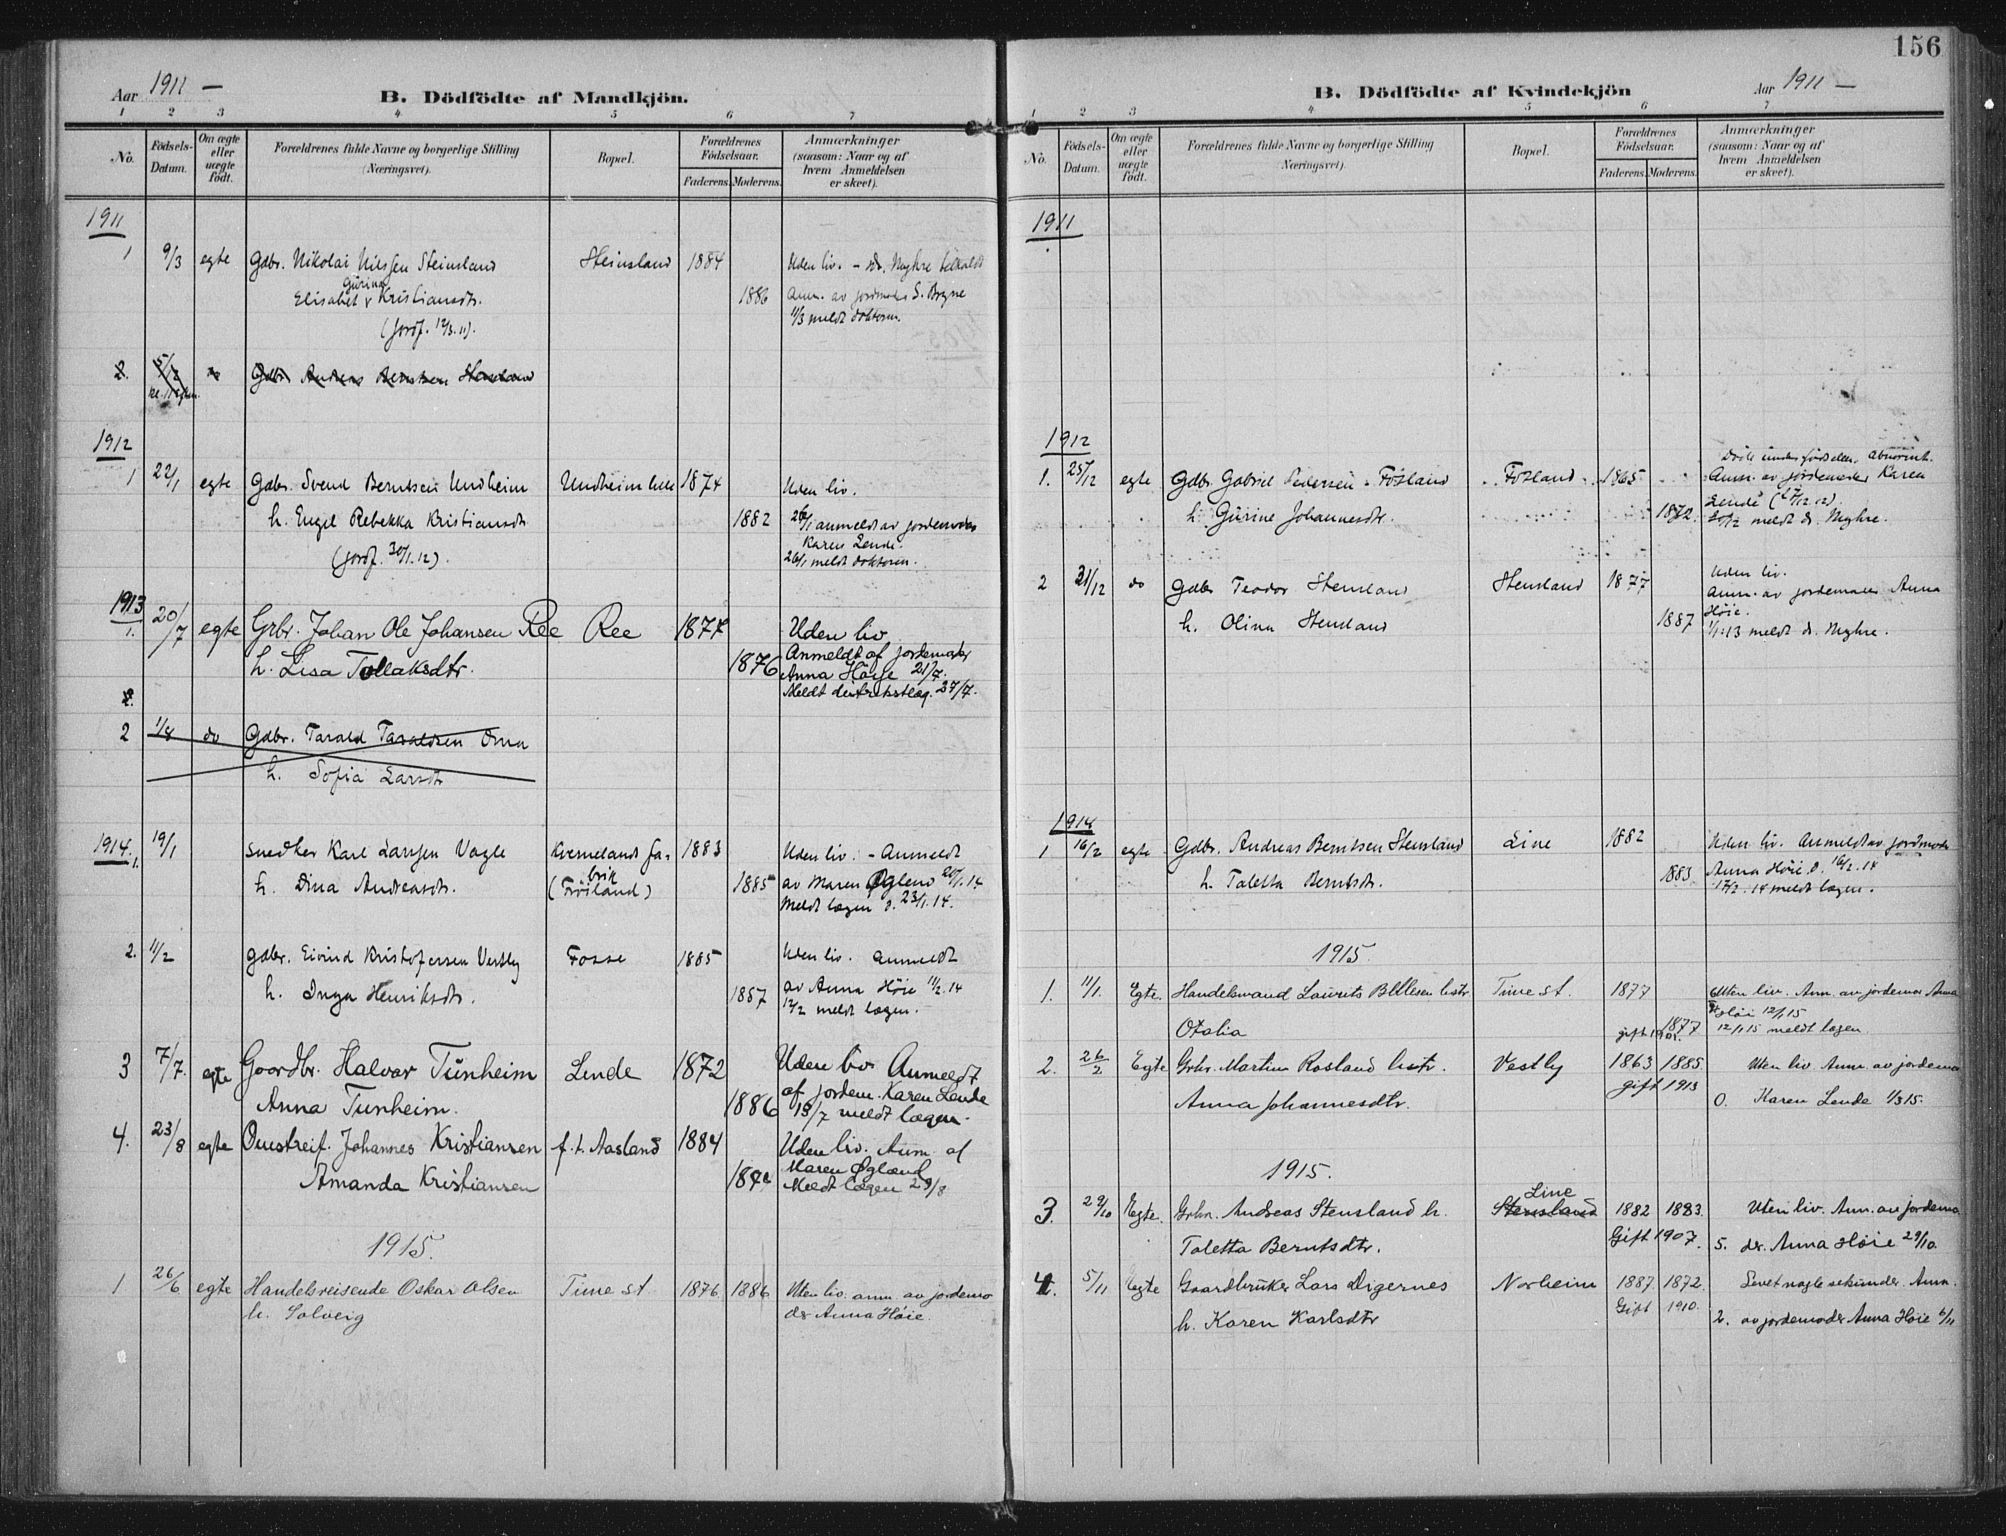 156
Aar 1911 —
B. Dödfödte af Mandkjön.
1 2 3 4 5 6 7
No.
Födsels-Datum.
Om ægte eller uægte födt.
Forældrenes fulde Navne og borgerlige Stilling
(Næringsvei).
Bopæl.
Forældrenes Födselsaar.
Faderens. Moderens.
Anmærkninger
(saasom: Naar og af
hvem Anmeldelsen
er skeet).
1911
1 9/3 egte Gdbr. Nikolai Nilssen Steinsland Steinsland 1884 Uden liv. – dr. Myhre tilkaldt
Gurina
Elisabet v Kristiansdtr. 1886 Anm. av jordmoder S. Bryne
(jordf. 12/3.11). 11/3 meldt doktoren.
2. 5/12 Gdbr. Andreas Berntsen Stensland
1912
1 22/1 egte Gdbr. Svend Berntsen Undheim Undheim lille 1874 Uden liv.
h. Engel Rebekka Kristiansdtr 1882 26/1 anmeldt av jordemoder
Karen Lende.
(jordf. 30/1.12). 26/1 meldt doktoren.
1913
1. 20/7 egte Grbr. Johan Ole Johansen Ree Ree 1877 Uden liv
h. Lisa Tollaksdtr. 1876 Anmeldt af jordemoder
Anna Høije 21/7.
Meldt distriktslæg. 27/7.
2.
2 1/8 do Gdbr. Tarald Taraldsen Oma
h. Sofia Larsdtr
1914.
1. 19/1 snedker Karl Larssen Vagle Kvernelands fa- 1883 Uden liv. – Anmeldt
brik
h. Dina Andreasdtr. (Frøiland) 1885 av Maren Øglend 20/1.14
Meldt lægen d. 23/1.14.
2. 11/2 gdbr. Eivind Kristofersen Vestly Fosse 1885 Uden liv. anmeldt
h. Inga Henriksdtr. 1887 av Anna Høie 11/2.14
12/2 meldt lægen.
3 7/7. egte Gaardbr. Halvar Tunheim Lende 1872 Uden liv Anmeldt
Anna Tunheim. 1886 af jordem. Karen Lende
15/7 meldt lægen.
4. 23/8 egte Omstreif. Johannes Kristiansen f. t. Aasland 1884 Uden liv. Anm. af
Amanda Kristiansen Maren Øglænd
Meldt lægen 29/8
1915.
1 26/6 egte Handelsreisende Oskar Olsen Time st 1876 1886 Uten liv. anm. av jordemo
h. Solveig der Anna Høie.
B. Dödfödte af Kvindekjön
Aar 1911 —
1 2 3 4 5 6 7
No.
Födsels-Datum.
Om ægte eller uægte födt.
Forældrenes fulde Navne og borgerlige Stilling
(Næringsvei).
Bopæl.
Forældrenes Födselsaar.
Faderens. Moderens.
Anmærkninger
(saasom: Naar og af
hvem Anmeldelsen
er skeet).
1911
1912
1. 25/12 egte Gdbr. Gabriel Pedersen Fosland Fosland 1865 Døde under fødselen. abnormt.
Anm. av jordemoder Karen
h. Gurine Johannesdtr. 1872. Lende
meldt dr. Myhre.
2 31/12 do Gdbr Teodor Stensland Stensland 1877 Uden liv.
Anm. av jordemoder Anna
h. Olina Stensland 1887 Høie.
1/1.13 meldt dr. Myhre.
1914
1 16/2 egte Gdbr. Andreas Berntsen Stensland Line 1882 Uden liv. Anmeldt av jordmoder
h. Taletta Berntsdtr. 1883 Anna Høie d. 16/2.14
17/2.14 meldt lægen.
1915.
1. 11/1. Egte. Handelsmand Laurits Time st 1877 Uten liv. Anm. av jordemor Anna
Otalia 1877 Høie 12/1 15
12/1.15 meldt lægen
2. 26/2 Egte Grbr. Martin Rosland hustr. Vestly 1863 1885 Uten liv Anm. av jordemo
gift 1913
Anna Johannesdtr. 0. Karen Lende 1/3 15.
1915.
3. 29/10 Egte. Grbr. Andreas Stensland h. Stensland Line 1882 1883. Uten liv. Anm. av jordemo
Gift 1907.
Taletta Berntsdtr. 5. der. Anna Høie 29/10
4. 5/11 Egte Gaardbruker Lars Digernes Norheim 1887. 1872. Levet nogle sekunder. Anm.
Gift 1910.
h. Karen Karlsdtr 2. av jordemoder Anna Høie 6/11